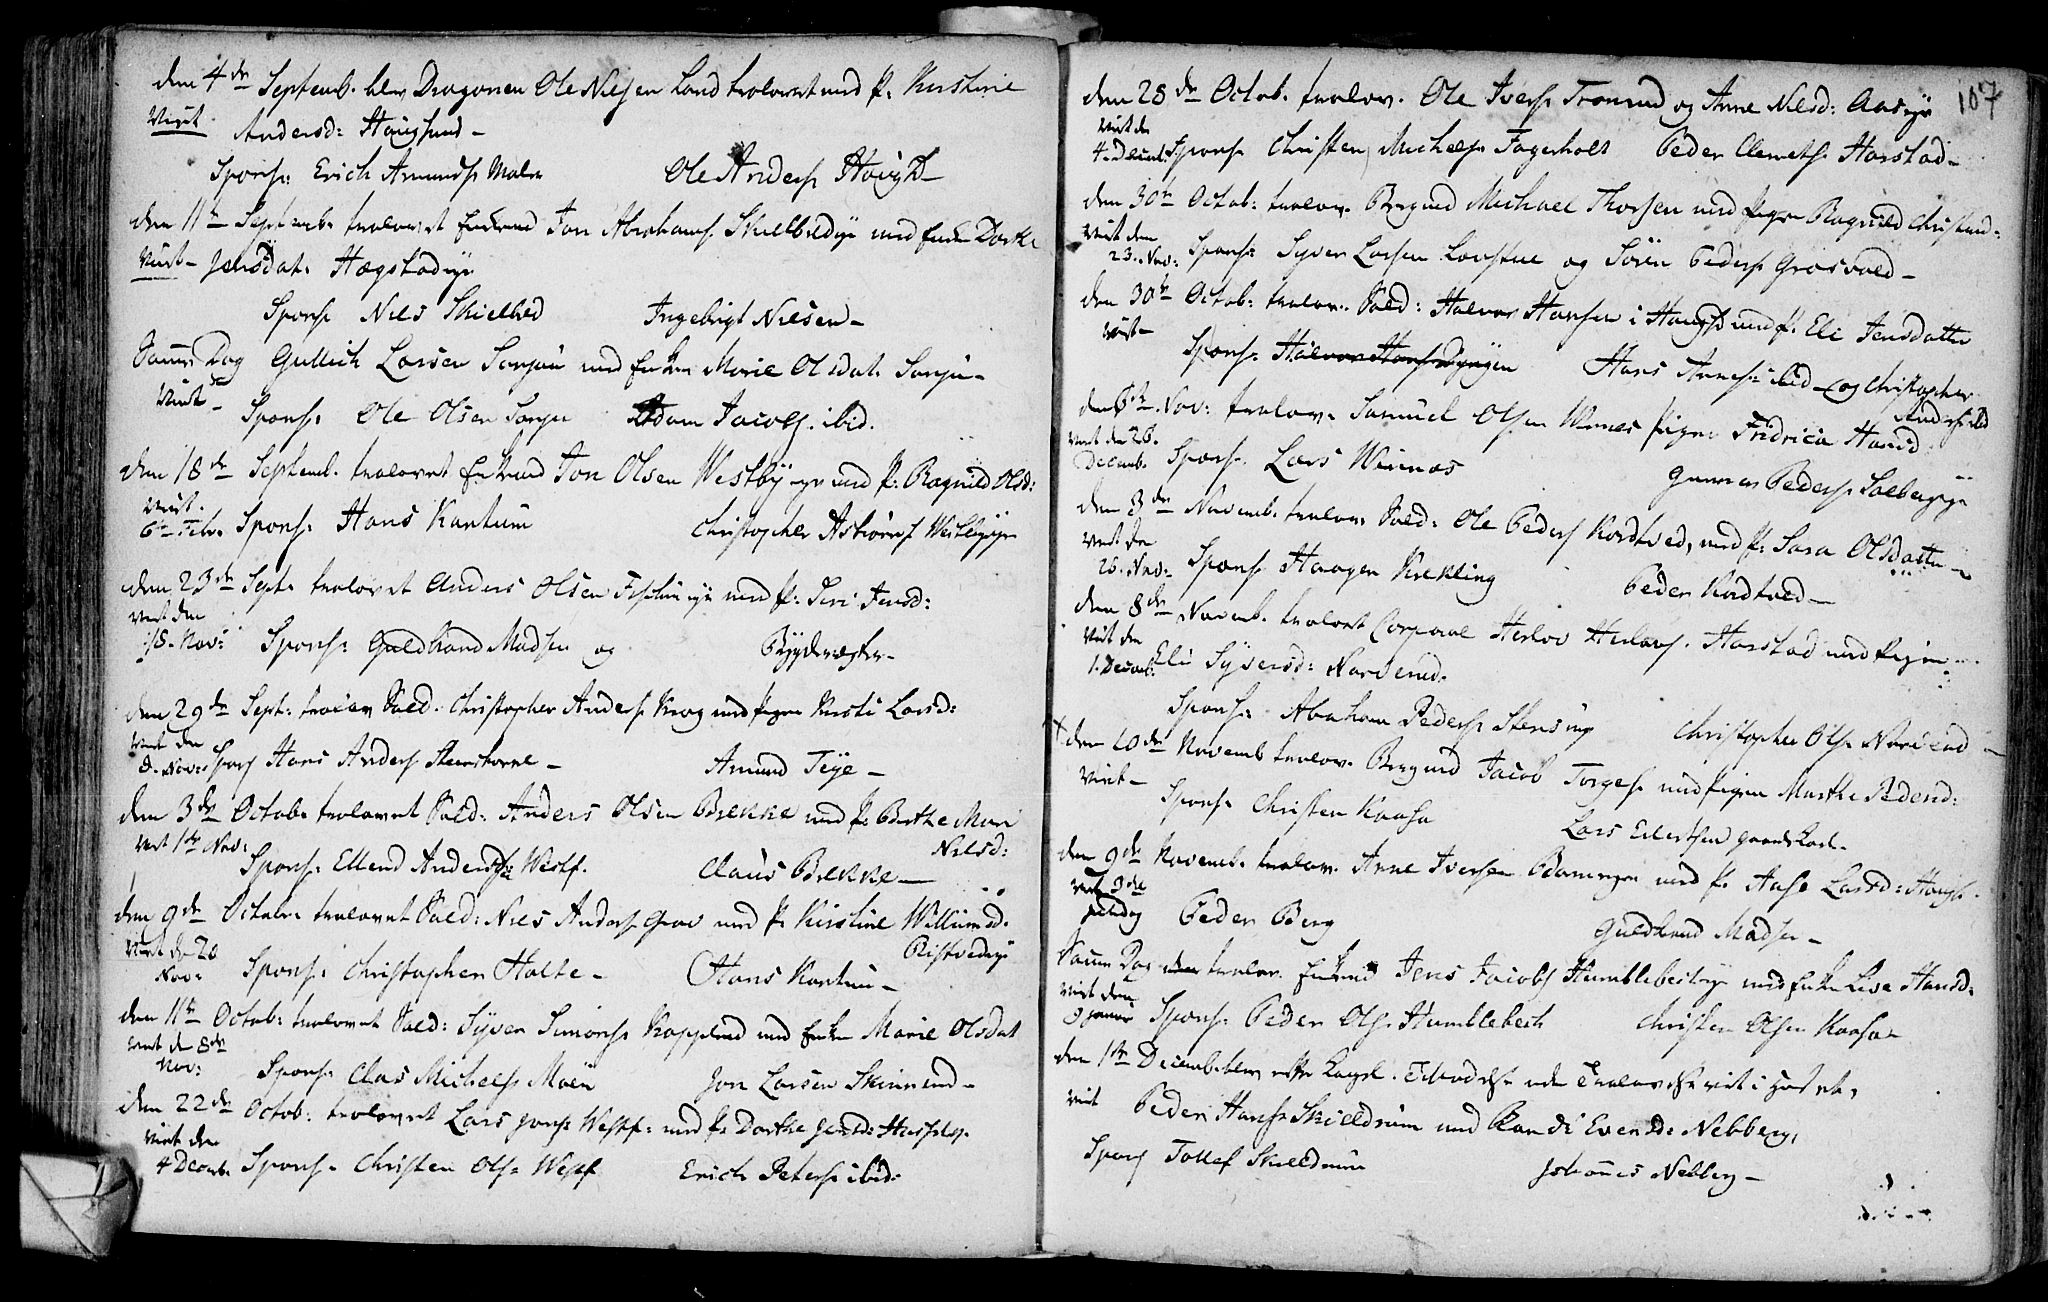 den 4de Septemb. blev Dragonen Ole Nilsen Land trolovet med P. Kirstine
Viet. Andersd: Haugsund -
Spons: Erich Amunds Malm Ole Anders Haugd
den 11te Septemb. trolovet Enkem Jon Abrahams. Skielbredje med Enke Dorthe
Viet - Jensdat. Hægstadeje
Spons Nils Skielbred Ingebrigt Nilsen -
Samme Dag Gullich Larsen Sanju med Enken Marie Olsdat. Sanju -
Viet - Spons: Ole Olsen Sanju Adam Jacobs. ibid.
den 18de Septemb. trolovet Enkem Jon Olsen Westby eje med P. Ragnild Olsd:
Viet.
6te Febr. Spons: Hans Kantum Christopher Asbiørns Westbyeje
den 23de Sept. trolovet Anders Olsen eje med P. Siri Jensd:
viet den
18. Nov: Spons: Guldbrand Madsen og Bygdevægter -
den 29de Sept: trolov Sold. Christopher Anders Krog med Pigen Kirsti Larsd:
viet den
8. Nov: Spons Hans Anders Steenstorve - Amund Teye -
den 3de Octob. trolovet Sold: Anders Olsen Bekke med P. Berthe Mari
viet 1te Nov: Nilsd:
Spons: Ellend Anders Westf. Claus Bekke -
den 9de Octob. trolovet Sold: Nils Anders Grav med P. Kirstine Willumsd.
Viet den 20 Ristvedeje
Nov: Spons: Christopher Holte - Hans Kantum -
den 11te Octob: trolovet Sold: Syver Simons Kopperud med Enke Marie Olsdat
viet d. 8de
Nov: Spons: Clas Michels Moen Jon Larsen Skinnerud -
den 22de Octob: trolovet Lars Jons: Westf: med P. Dorthe Jensd:
viet den
4 Decemb. Spons. Christen Ols. Westf Erich Peters ibid:
107
den 28de Octob. trolov. Ole Ivers Tronrud og Anne Nilsd: Aaseje
viet den
4. Decemb. Spons Christen Michels Fagerholt Peder Clemets Harstad -
den 30te Octob: trolov. Bergmd Michael Thorsen med Pigen Ragnild Christensd:
Viet den
23. Nov: Spons: Syver Larsen Lovstue og Søren Peders Grosvold -
den 30te Octob: trolov. Sold: Halvor Hansen i Haugs med P. Eli Jensdatter
viet -
Spons: Halvor Hans Hans Arnes: ibid - og Christopher
Anders ibid
den 6te Nov: trolov. Samuel Olsen Winnes Pigen Fridrica Hansd
viet den 26.
Decemb. Spons. Lars Winnes Gunner Peders Solbergeje
den 8de Novemb. trolov. Sold: Ole Peders Kordtved, med P. Sara Olsdatter -
viet den
26. Nov: Spons Haagen Kiekling Peder Kordtved -
den 8de Novemb. trolovt Corporal Herlov Herlovs. Harstad med Pigen
viet den
1. Decemb. Eli Syversd: Narverud.
Spons: Abraham Peders Stensing Christopher Ols. Narverud -
+ den 10de Novemb trolov. Bergmd Jacob Torges med Pigen Marthe Pedersd:
Viet - Spons. Christen Kaasa Lars Evertsen
den 9de Novemb. trolov. Arne Iversen med P. Aase Larsd: Haugs.
viet 3die
Juledag Peder Berg Guldbrand Madsen -
Samme Dag trolov. Enkemd Jens Jacobs Humblebecheje med Enke Lisa Hansd:
viet den
9 Januar Spons. Peder Ols. Humblebech Christen Olsen Kaasa -
den 1te Decemb. blev efter Kongel. Tilladelse uden Trolovelse viet i Huset,
viet Peder Hans Skieldrum med Randi Evensd: Nebberg,
Spons Tollef Skieldrum Johannes Nebberg -